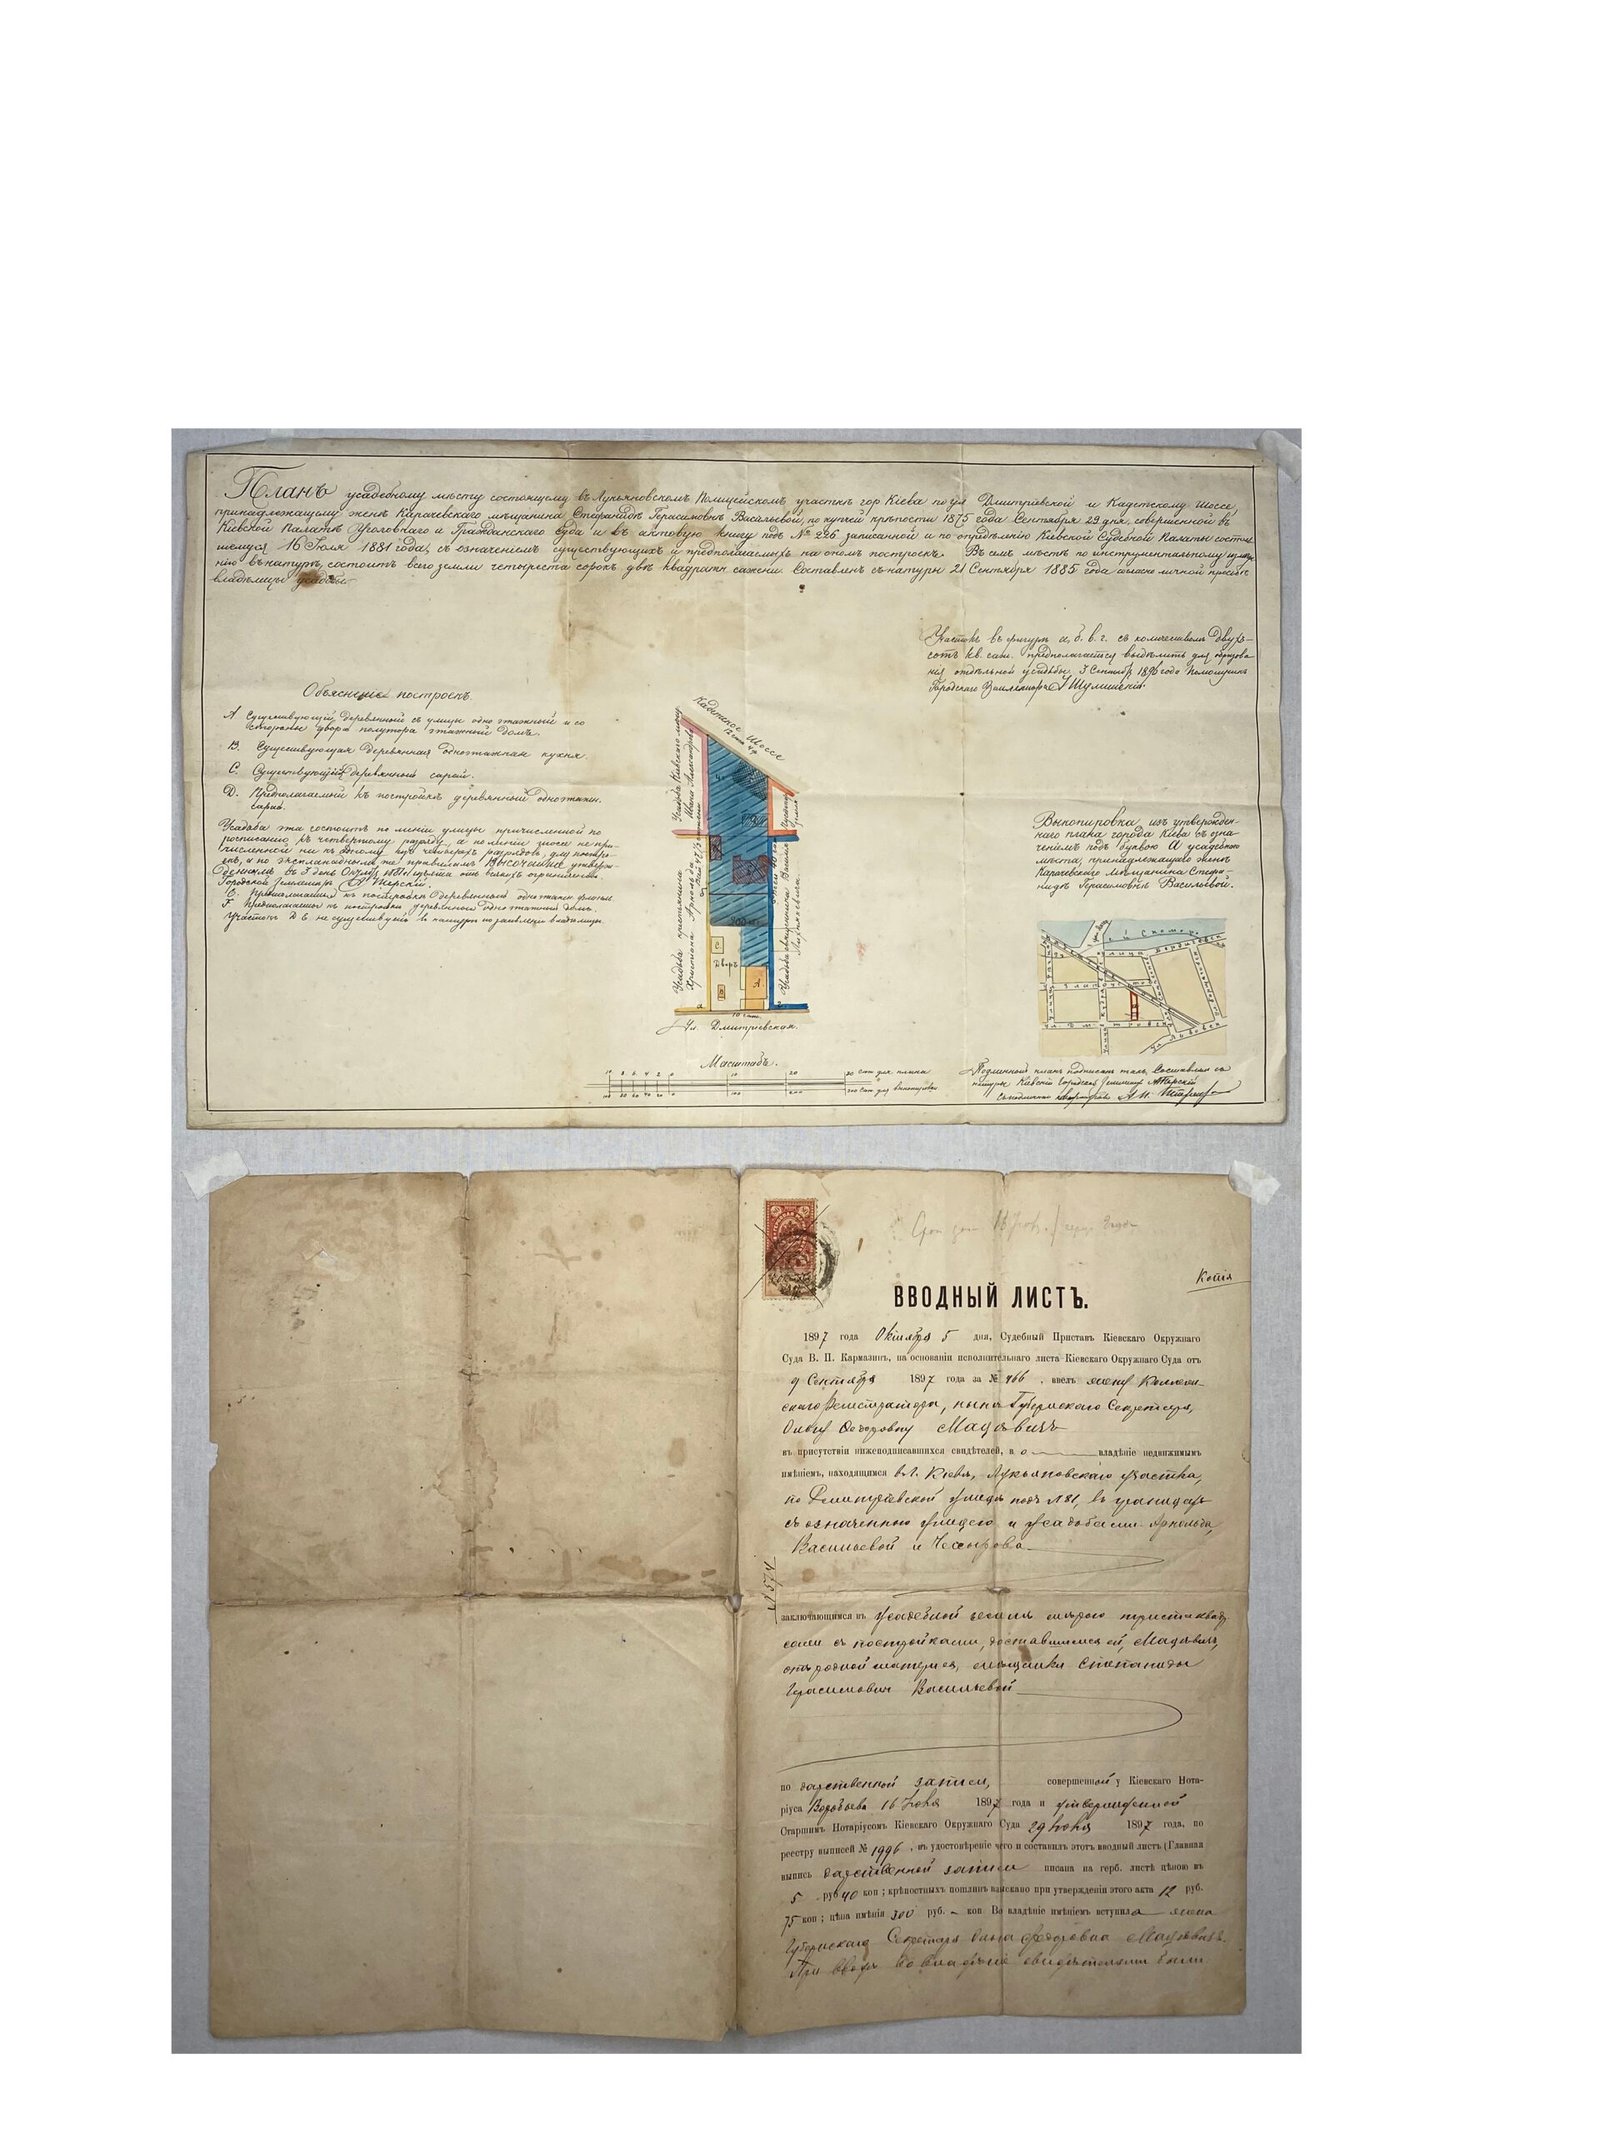 Планъ усадебному мѣсту состоящему въ Лукьяновскомъ Полицейскомъ участкѣ гор Кіева по ул Дмитріевской и Кадетскому Шоссе,
принадлежащему женѣ Карачевскаго мѣщанина Стефанидѣ Герасимовнѣ Васильевой, по купчей крѣпости 1875 года Сентября 29 дня, совершенной въ
Кіевской Палатѣ Уголовнаго и Гражданскаго Суда и въ актовую книгу подъ № 226 записанной и по опредѣленію Кіевской Судебной Палаты состояв
шемуся 16 Іюля 1881 года, съ означеніемъ существующихъ и предполагаемыхъ на ономъ построекъ. Въ семъ мѣстѣ по инструментальному измѣре
нію въ натурѣ, состоитъ всего земли четыреста сорокъ двѣ квадратн сажени. Составленъ съ натуры 21 Сентября 1885 года согласно личной просьбѣ
владѣлицы усадьбы
Участокъ въ фигурѣ а, б. в. г. съ количествомъ двухъ-
сотъ кв. саж. предполагается выдѣлить для образова
нія отдѣльной усадьбы. 3 Сентября 1896 года Помощникъ
Городского Землемѣра
Объясненіе построекъ.
А. Существующій деревянный съ улицы одноэтажный и со
стороны двора полутора этажный домъ.
В. Существующая деревянная одноэтажная кухня.
С. Существующій деревянный сарай.
D. Предполагаемый къ постройкѣ деревянный одноэтажн.
сарай.
Усадьба эта состоитъ по линіи улицы причисленной по
росписанію къ четвертому разряду, а по линіи шоссе не при-
численной ни къ одному изъ четырехъ разрядовъ, для построй-
Городской Землемѣръ Терскій.
Е. Предполагаемый къ постройкѣ деревянный одноэтажн. флигель
F. Предполагаемый къ постройкѣ деревянный одноэтажный домъ.
Участокъ D E не существуетъ въ натурѣ по заявленію владѣлицы.
Кадетское Шоссе
Усадьба Кіевскаго мѣщ.
Усадьба
Христіана Арнольда
Усадьба священника
Дворъ
С.
В
А.
10 саж.
Ул. Дмитріевская.
Выкопировка изъ утвержден-
наго плана города Кіева съ озна-
ченіемъ подъ буквою А усадебнаго
мѣста, принадлежащаго женѣ
Карачевскаго Мѣщанина Стефа-
нидѣ Герасимовнѣ Васильевой.
Масштабъ.
10 8 6 4 2 0 10 20 30 саж для плана
100 80 60 40 20 0 100 200 300 саж для выкопировки
Подлинной планъ подписанъ такъ: Составлялъ съ
натуры Кіевскій Городской Землемѣръ Терскій
ВВОДНЫЙ ЛИСТЪ.
Копія
1897 года Октября 5 дня, Судебный Приставъ Кіевскаго Окружнаго
Суда В. П. Кармазинъ, на основаніи исполнительнаго листа Кіевскаго Окружнаго Суда отъ
9 Сентября 1897 года за № 466, ввелъ жену Коллеж-
скаго Регистратора, нынѣ Губернскаго Секретаря,
Ольгу Федоровну
въ присутствіи нижеподписавшихся свидѣтелей, в о владѣніе недвижимымъ
имѣніемъ, находящимся въ г. Кіевѣ, Лукьяновскаго участка,
по Дмитріевской улицѣ подъ № 81, въ границахъ
съ означенною улицею и усадьбами Арнольда,
Васильевой и
№ 574
заключающимся въ усадебной землѣ мѣрою триста квад.
саж. съ постройками, доставшимся ей,
отъ родной матери ея, мѣщанки Степаниды
Герасимовны Васильевой
по дарственной записи, совершенной у Кіевскаго Нота-
ріуса Воробьева 16 Іюня 1897 года и утвержденной
Старшимъ Нотаріусомъ Кіевскаго Окружнаго Суда 29 Іюня 1897 года, по
реестру выписей № 1996, въ удостовѣреніе чего и составилъ этотъ вводный листъ (Главная
выпись дарственной записи писана на герб. листѣ цѣною въ
5 руб 40 коп; крѣпостныхъ пошлинъ взыскано при утвержденіи этого акта 12 руб.
75 коп; цѣна имѣнія 300 руб. – коп Во владѣніе имѣніемъ вступила жена
Губернскаго Секретаря Ольга Федоровна
При вводѣ во владѣніе свидѣтелями были